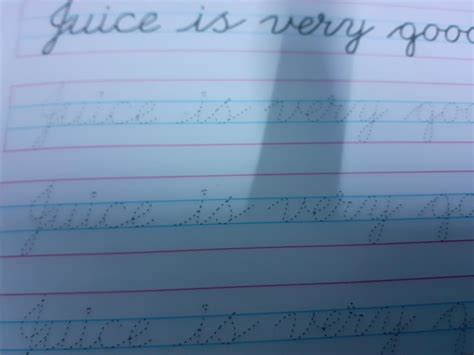 Juice is very good
Juice is very go
Juice is very g
Juice is very g